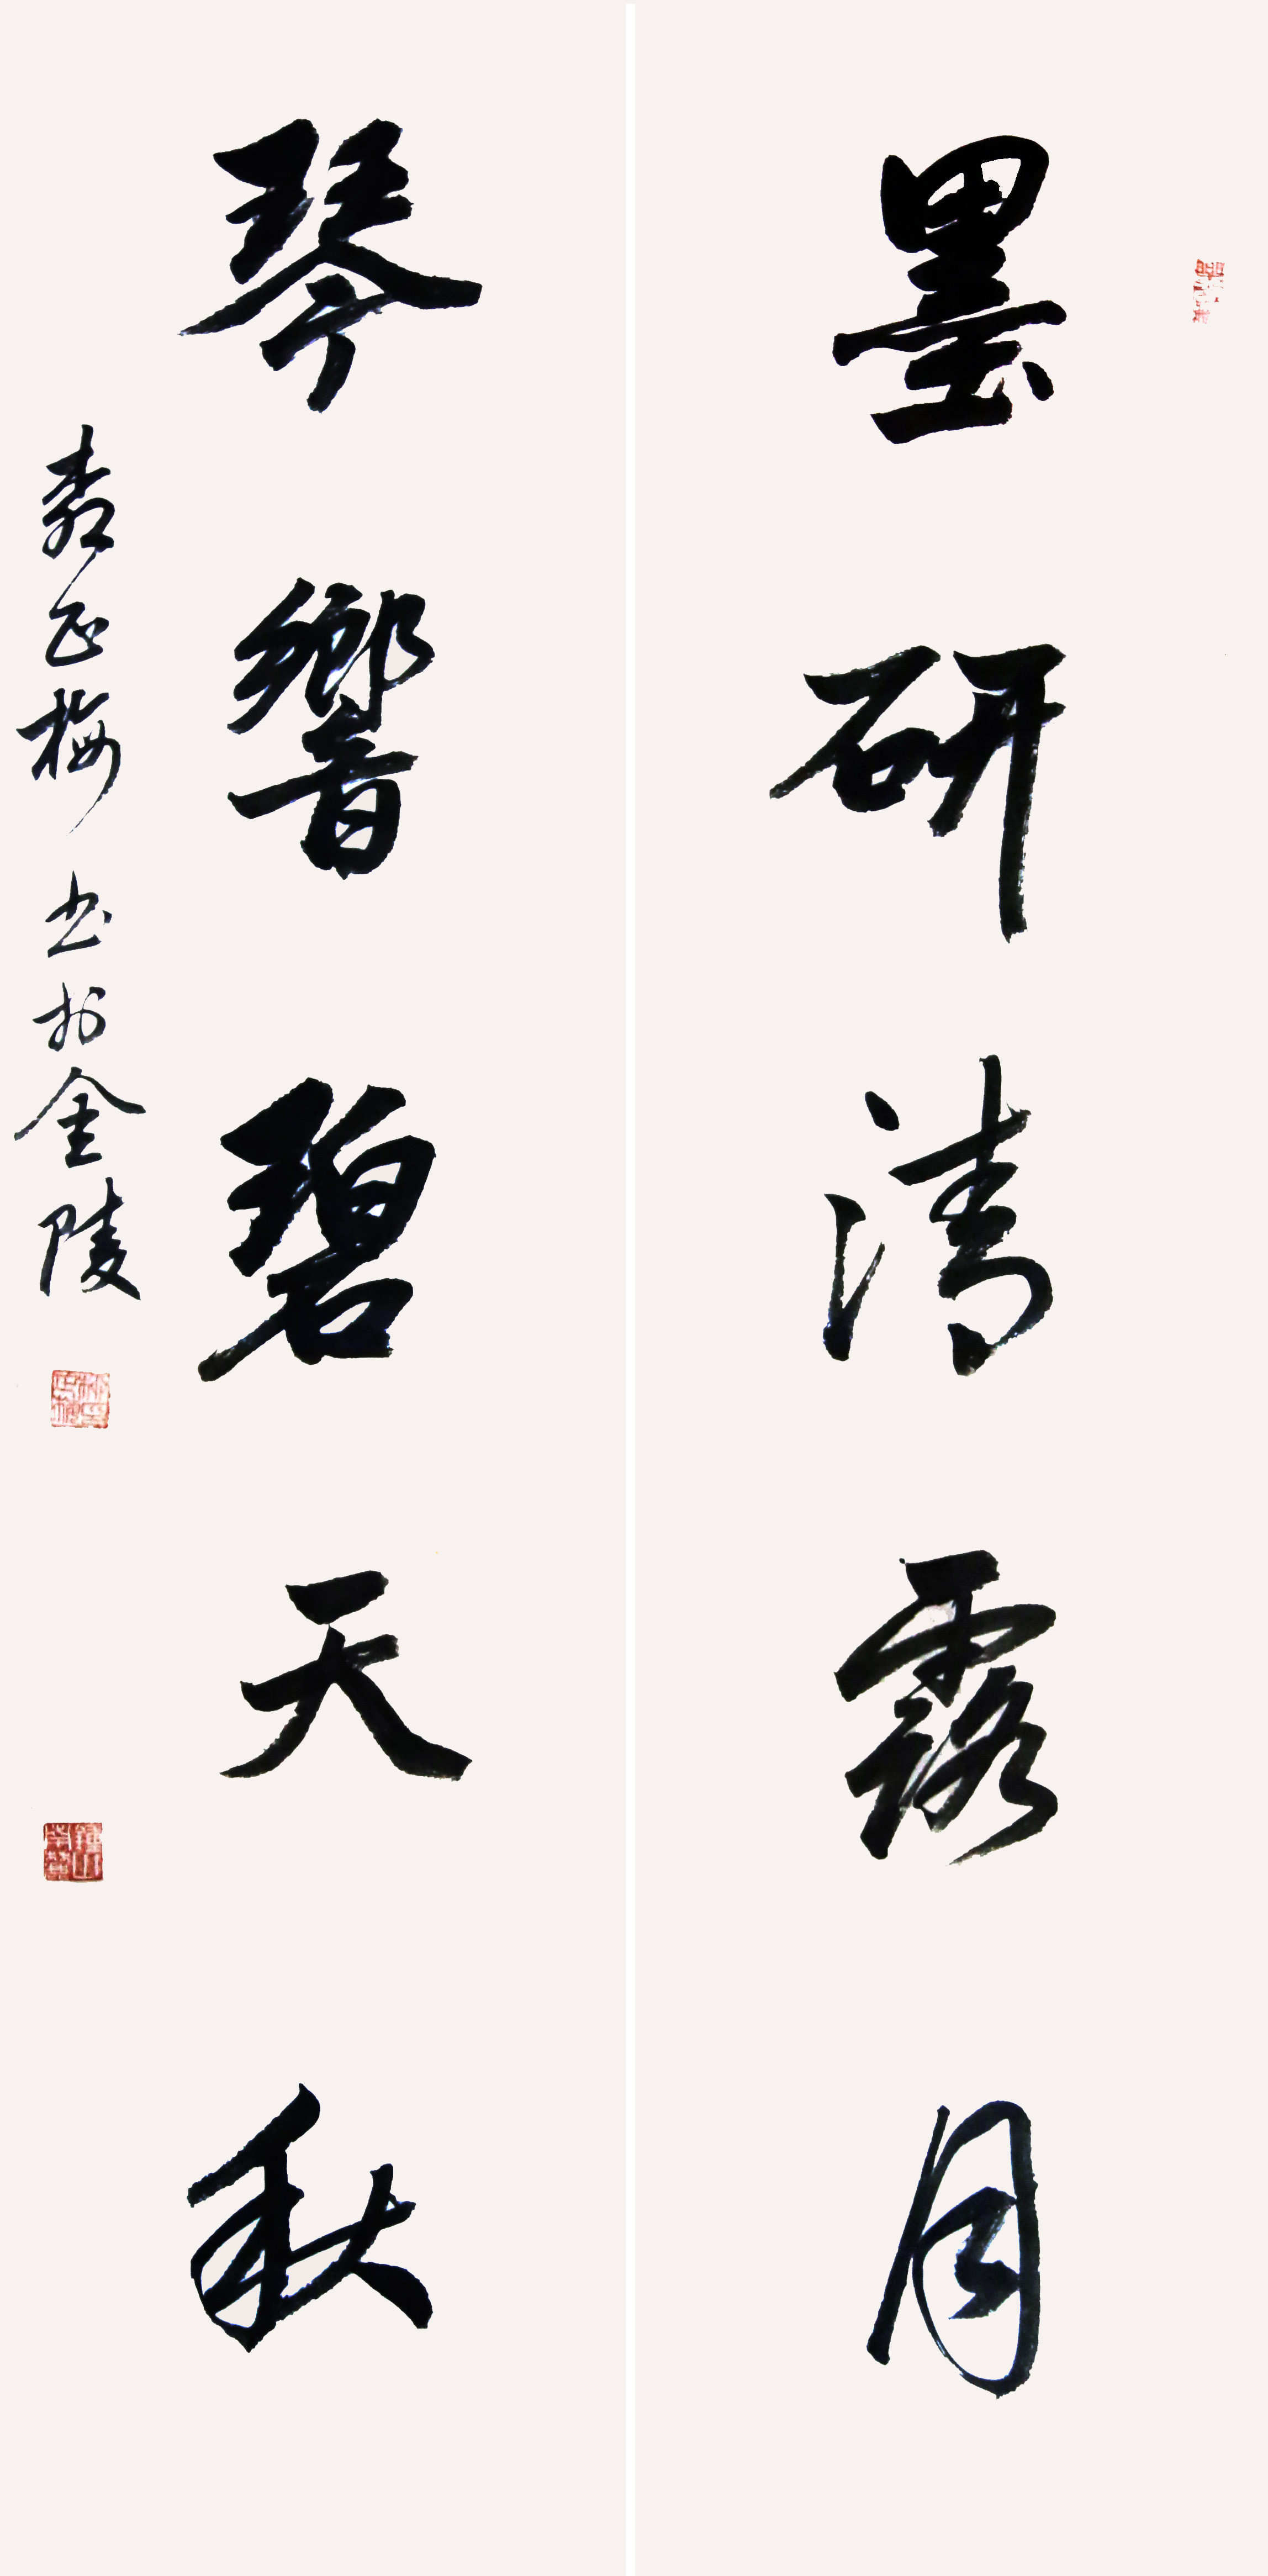 墨研清露月
琴響碧天秋
袁正梅书於金陵